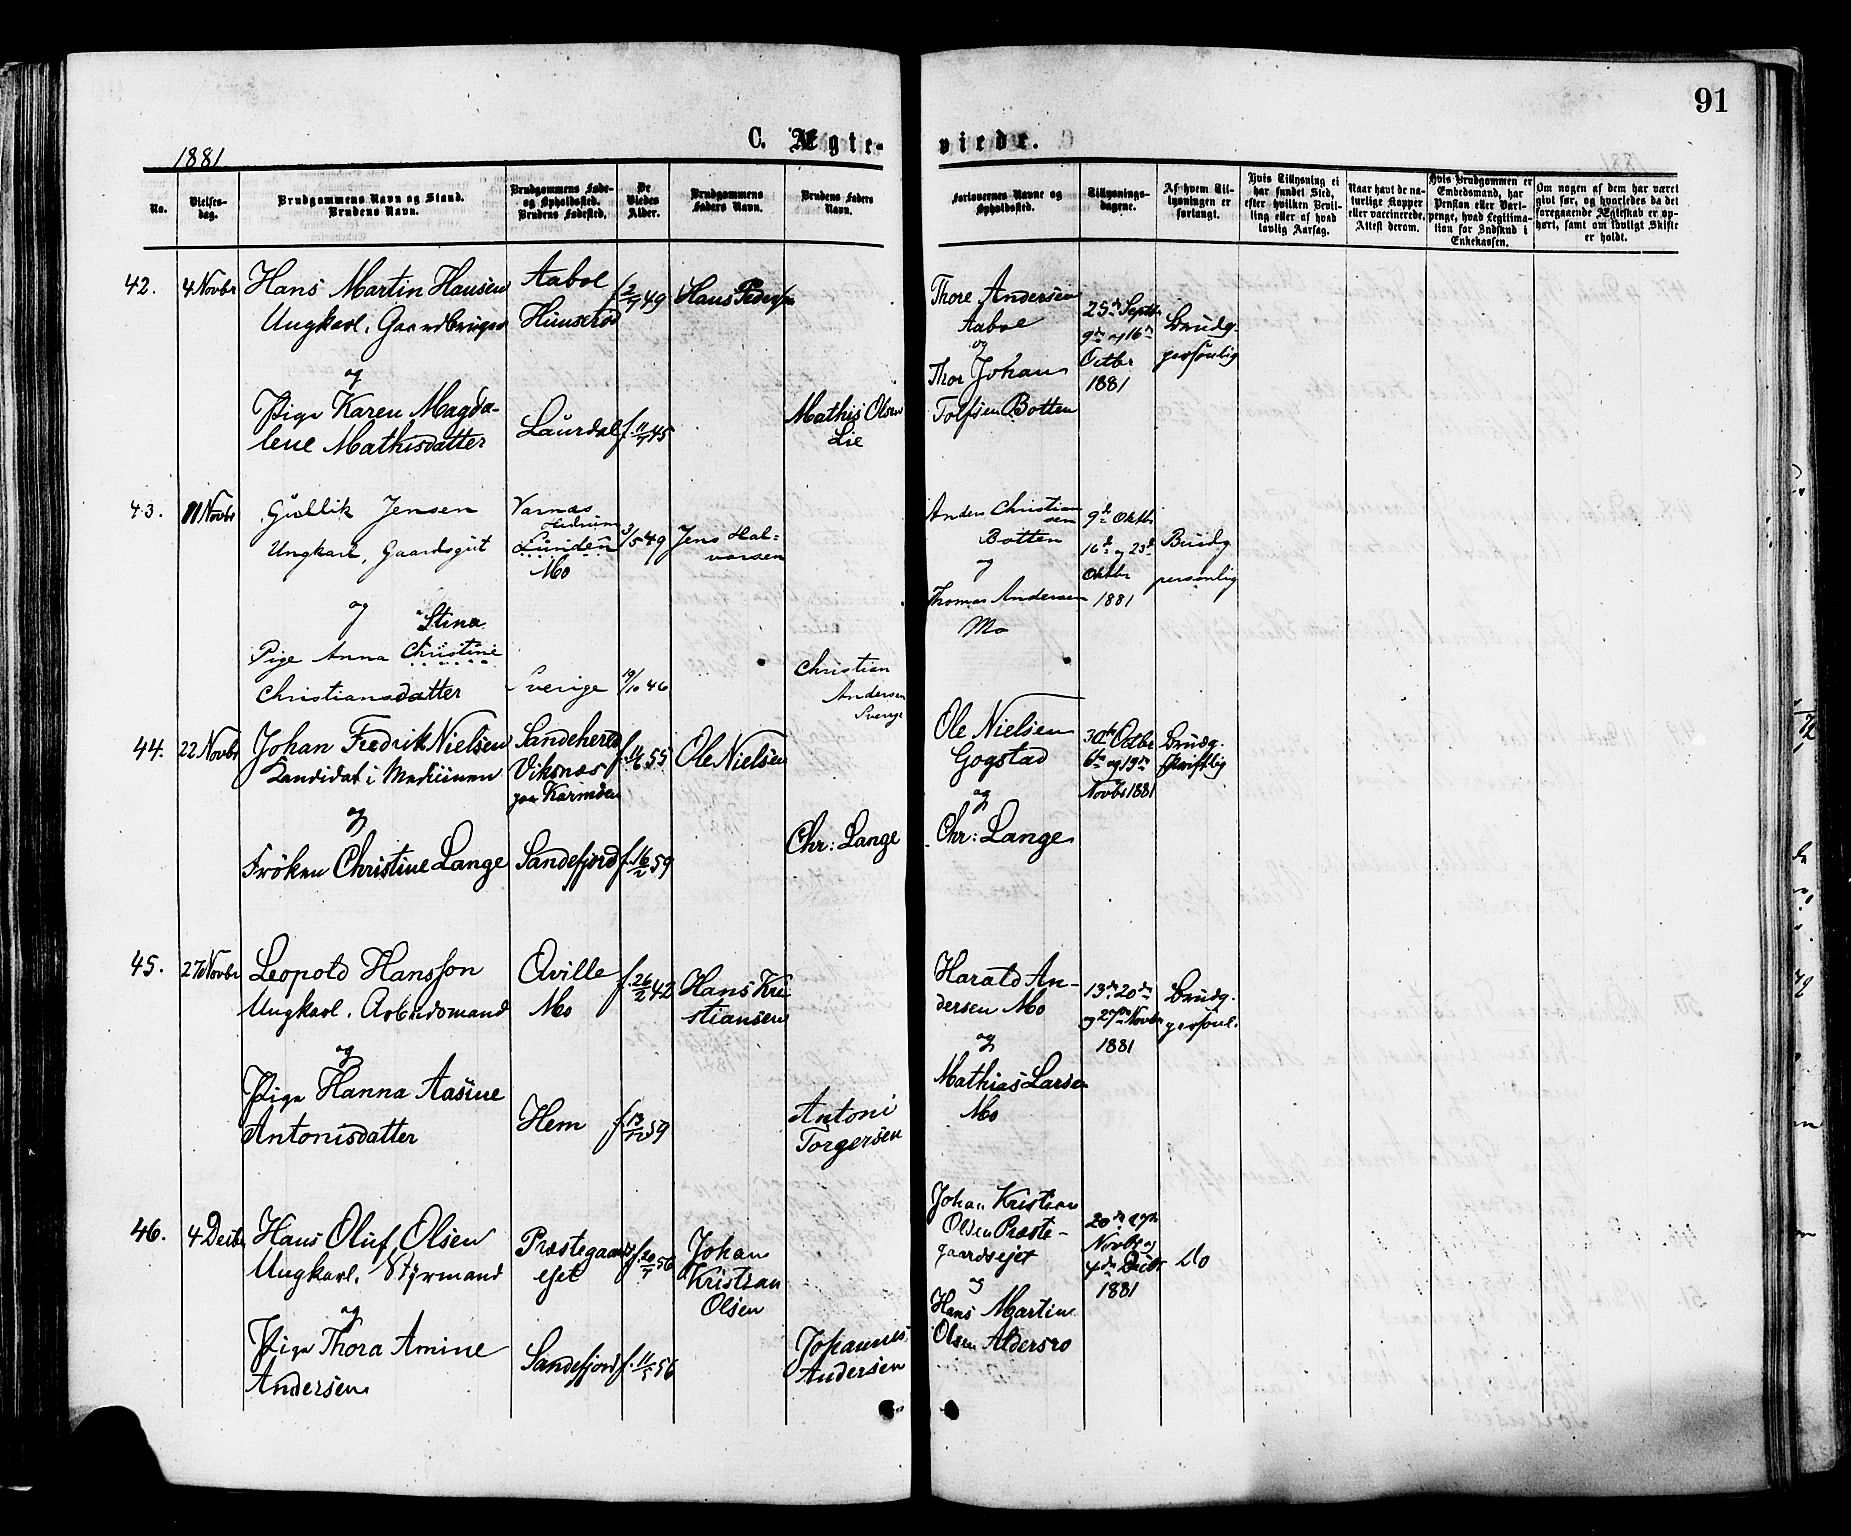 91
1881
C. Ægte-
viede.
No.
Vielses-
dag.
Brudgommens Navn og Stand.
Brudens Navn.
Brudgommens Føde-
og Opholdssted.
Brudens Fødested.
De
Viedes
Alder.
Brudgommens
Faders Navn.
Brudens Faders
Navn.
Forlovernes Navne og
Opholdssted.
Tillysnings-
dagene.
Af hvem Til-
lysningen er
forlangt.
Hvis Tillysning ei
har fundet Sted,
efter hvilken Bevil-
ling eller af hvad
lovlig Aarsag.
Naar havt de na-
turlige Kopper
eller vaccinerede.
Attest derom.
Hvis Brudgommen er
Embedsmand, har
Pension eller Vart-
penge, hvad Legitima-
tion for Indskud i
Enkekassen.
Om nogen af dem har været
givt før, og hvorledes da det
foregaaende Ægteskab er op-
hørt, samt om lovligt Skifte
er holdt.
42.
4 Novbr
Hans Martin Hansen
Ungkarl, Gaardbruger
og
Pige Karen Magda-
lene Mathisdatter
Aabol
Hunserød
Laurdal
f. 2/7 49
f. 11/7 45
Hans Peders
Mathis Olsen
Lie
Thore Andersen
Aabol
og
Thor Johan
Tolfsen Botten
25de Septbr
9de og 16de
Octbr
1881
Brudg.
personlig
43.
11 Novbr
Gullik Jensen
Ungkarl, Gaardsgut
og
Stina
Pige Anna Christine
Christiansdatter
Varnæs
Hedrum
Lunden
Mo
Sverige
3/5 49
19/10 46
Jens Hal=
vorsen
Christian
Andersen
Sverige
Anders Christian
sen
Botten
og
Thomas Andersen
Mo
9de Oktbr
16de og 23de
Oktbr
1881
Brudg
personlig
44.
22 Novbr
Johan Fredrik Nielsen
Kandidat i Medicinen
og
Frøken Christine Lange
Sandeherred
Viksnæs
paa Karmøen
Sandefjord
f. 14/6 55
f. 16/2 59
Ole Nielsen
Chr: Lange
Ole Nielsen
Gogstad
og
Chr: Lange
30de Octbr
6te og 13de
Novbr 1881
Brudg.
skriftlig
45.
27 Novbr
Leopold Hansson
Ungkarl. Arbeidsmand
og
Pige Hanna Aasine
Antonisdatter
Mo
Hem
f. 26/2 42
f. 13/12 59
Hans Kri
stiansen
Antoni
Torgersen
Harald An-
dersen Mo
og
Mathias Larsen
Mo
13de 20de
og 27de Novbr
1881
Brudg.
personl.
46.
4 Decbr
Hans Oluf Olsen
Ungkarl. Styrmand
og
Pige Thora Amine
Andersen
Præstegaards
ejet
Sandefjord
f. 20/7 56
f. 11/5 56
Johan
Kristian
Olsen
Johannes
Andersen
Johan Kristian
Olsen Præste-
gaardsejet
og
Hans Martin
Olsen Aldersro
20de 27de
Novbr og
4de Decbr
1881
Do